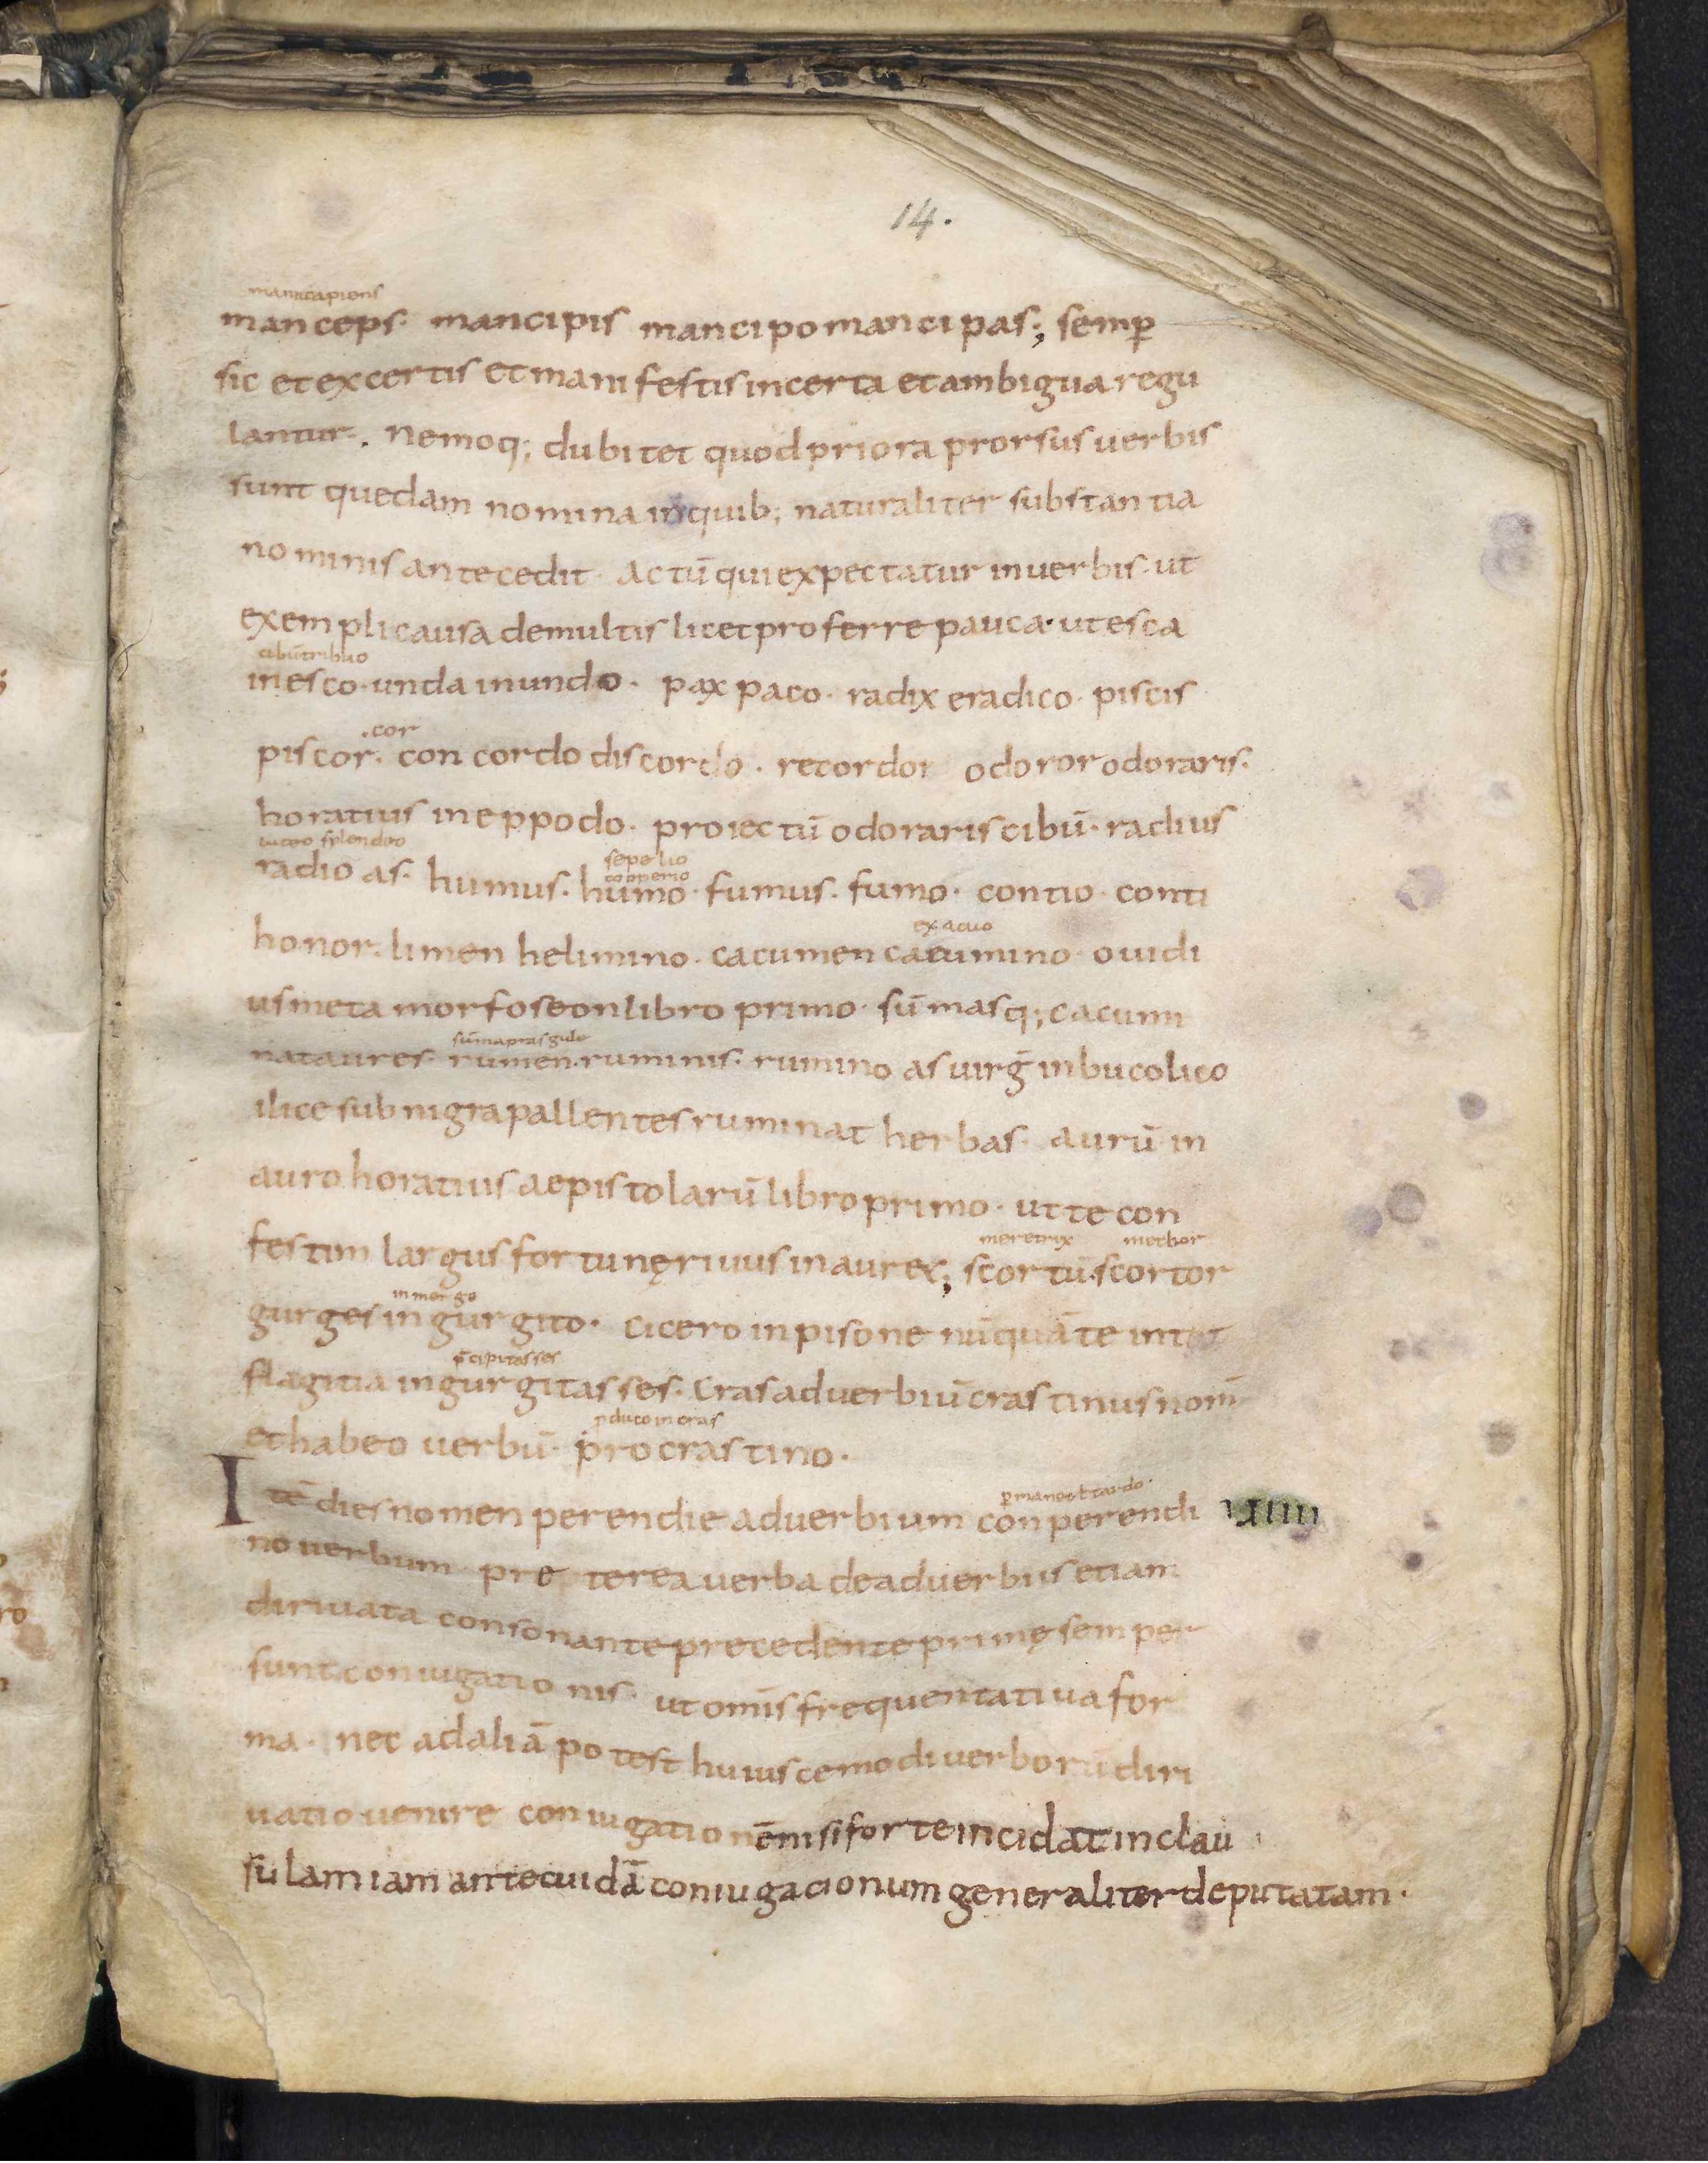 14.
manu capiens
manceps· mancipis mancipo mancipas; semꝑ
sic et ex certis et manifestis incerta et ambigua regu
lantur. Nemoq; dubitet quod priora prorsus verbis
sunt quedam nomina in quib; naturaliter substantia
nominis antecedit· actū qui expectatur in uerbis· ut
exempli causa de multis licet proferre pauca· ut esca
cibū tribuo
inesco· unda inundo· pax paco· radix eradico· piscis
.cor
piscor· concordo discordo· recordor odoror odoraris·
horatius in eppodo· proiectū odoraris cibū· radius
luceo splendeo sepelio
cooperio
radio as· humus· humo· fumus· fumo· contio· conti
exacuo
honor· limen helimino· cacumen cacumino· ouidi
us metamorfoseon libro primo· sūmasq; cacumi
sūma pras gule
nat aures· rumen· ruminis· rumino as uirḡ in bucolico
ilice sub nigra pallentes ruminat herbas· aurū in
auro horatius aepistolarū libro primo· ut te con
meretrix mechor
festim largus fortunę riuus inauret; scortū· scortor
inmergo
gurges ingurgito· cicero in pisone nūquā te in tot
p̄cipitasses
flagitia ingurgitasses· Cras aduerbiū crastinus nom̄
ꝓduco in cras
et habeo uerbū· procrastino·
ꝑmaneo ł tardo·
Itē dies nomen perendie aduerbium conperendi VIIII
no uerbum· pre terea uerba de aduerbiis etiam
diriuata consonante precedente primę semper
sunt coniugationis· ut om̄is frequentatiua for
ma· nec ad aliā potest huiuscemodi uerborū diri
uatio uenire coniugationē nisi forte incidat in clau
sulam iam ante cuidā coniugacionum generaliter deputatam·